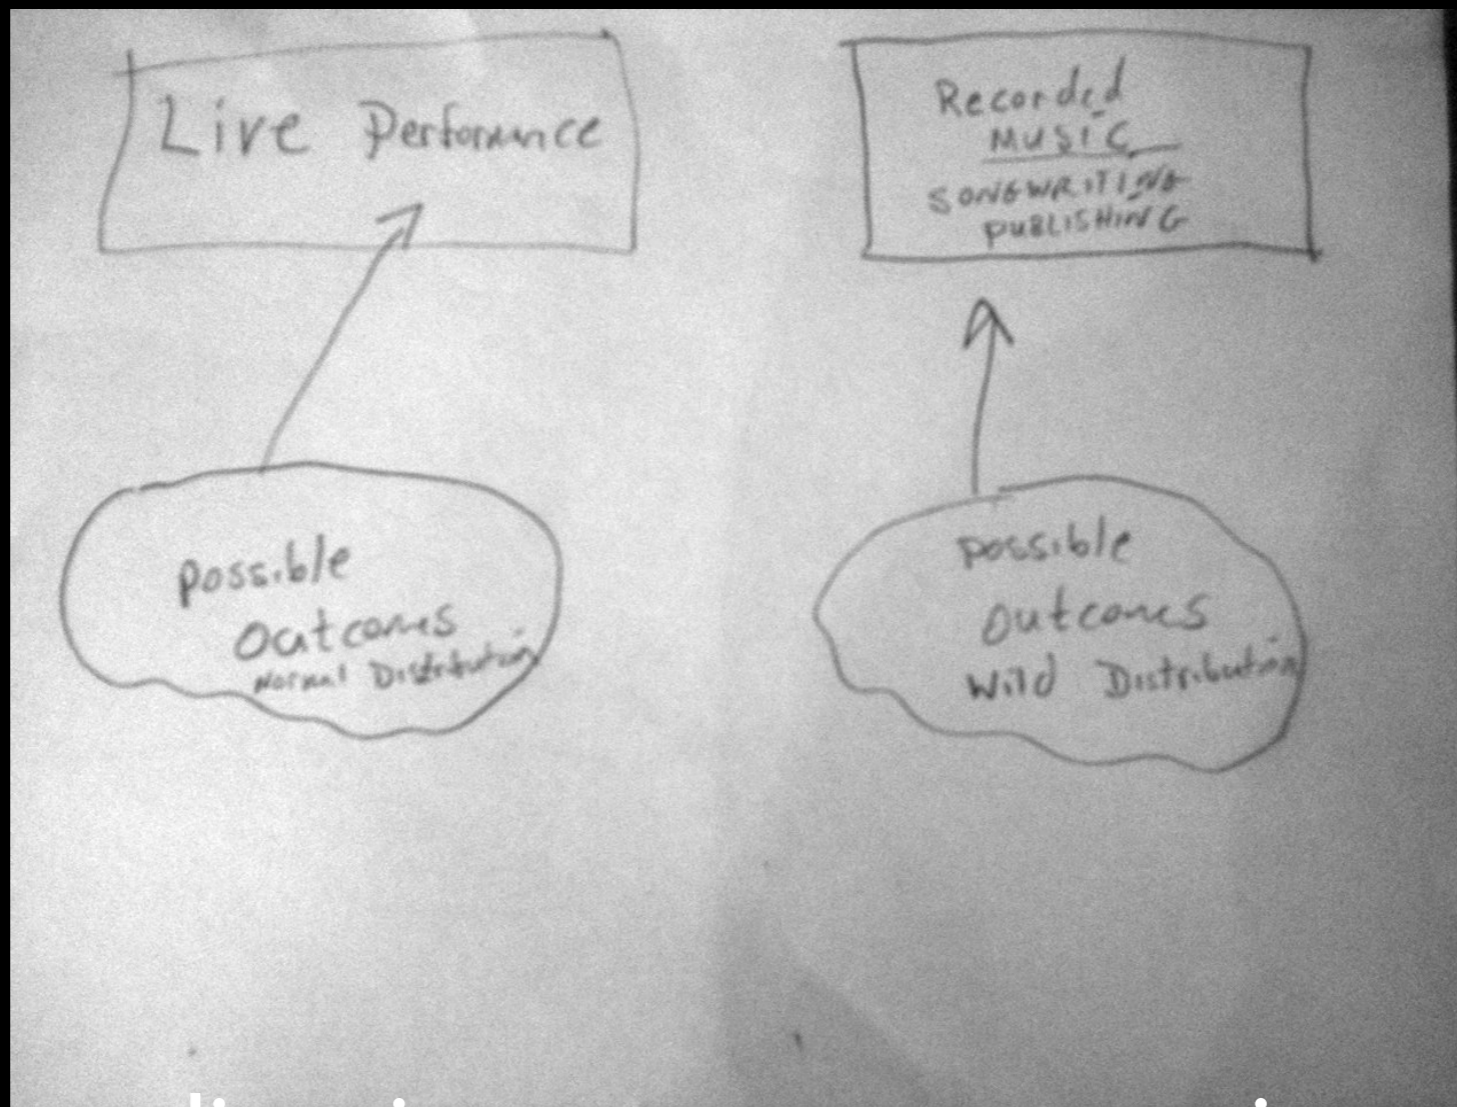 Live Performance
Recorded
MUSIC
SONGWRITING
PUBLISHING
possible
outcomes
Normal Distribution
possible
outcomes
Wild Distribution